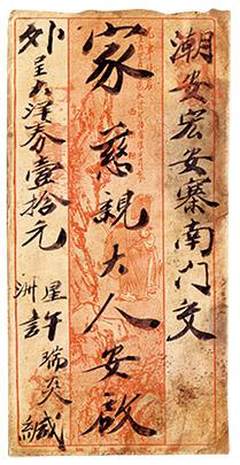 潮安宏安寨南门交
家慈親大人安啟
外呈大洋券壹拾元
星洲許瑞炎緘